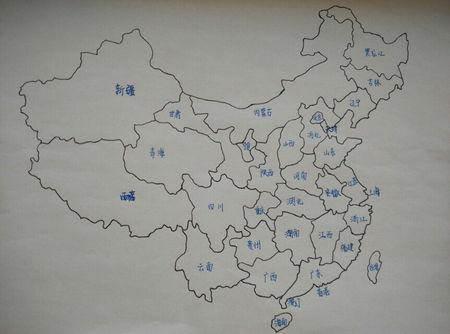 黑龙江
吉林
辽宁
新疆
甘肃
内蒙古
北京
天津
河北
山西
山东
青海
陕西
河南
西藏
四川
重庆
湖北
安徽
江苏
上海
浙江
湖南
江西
贵州
福建
云南
广西
广东
台湾
香港
澳门
海南